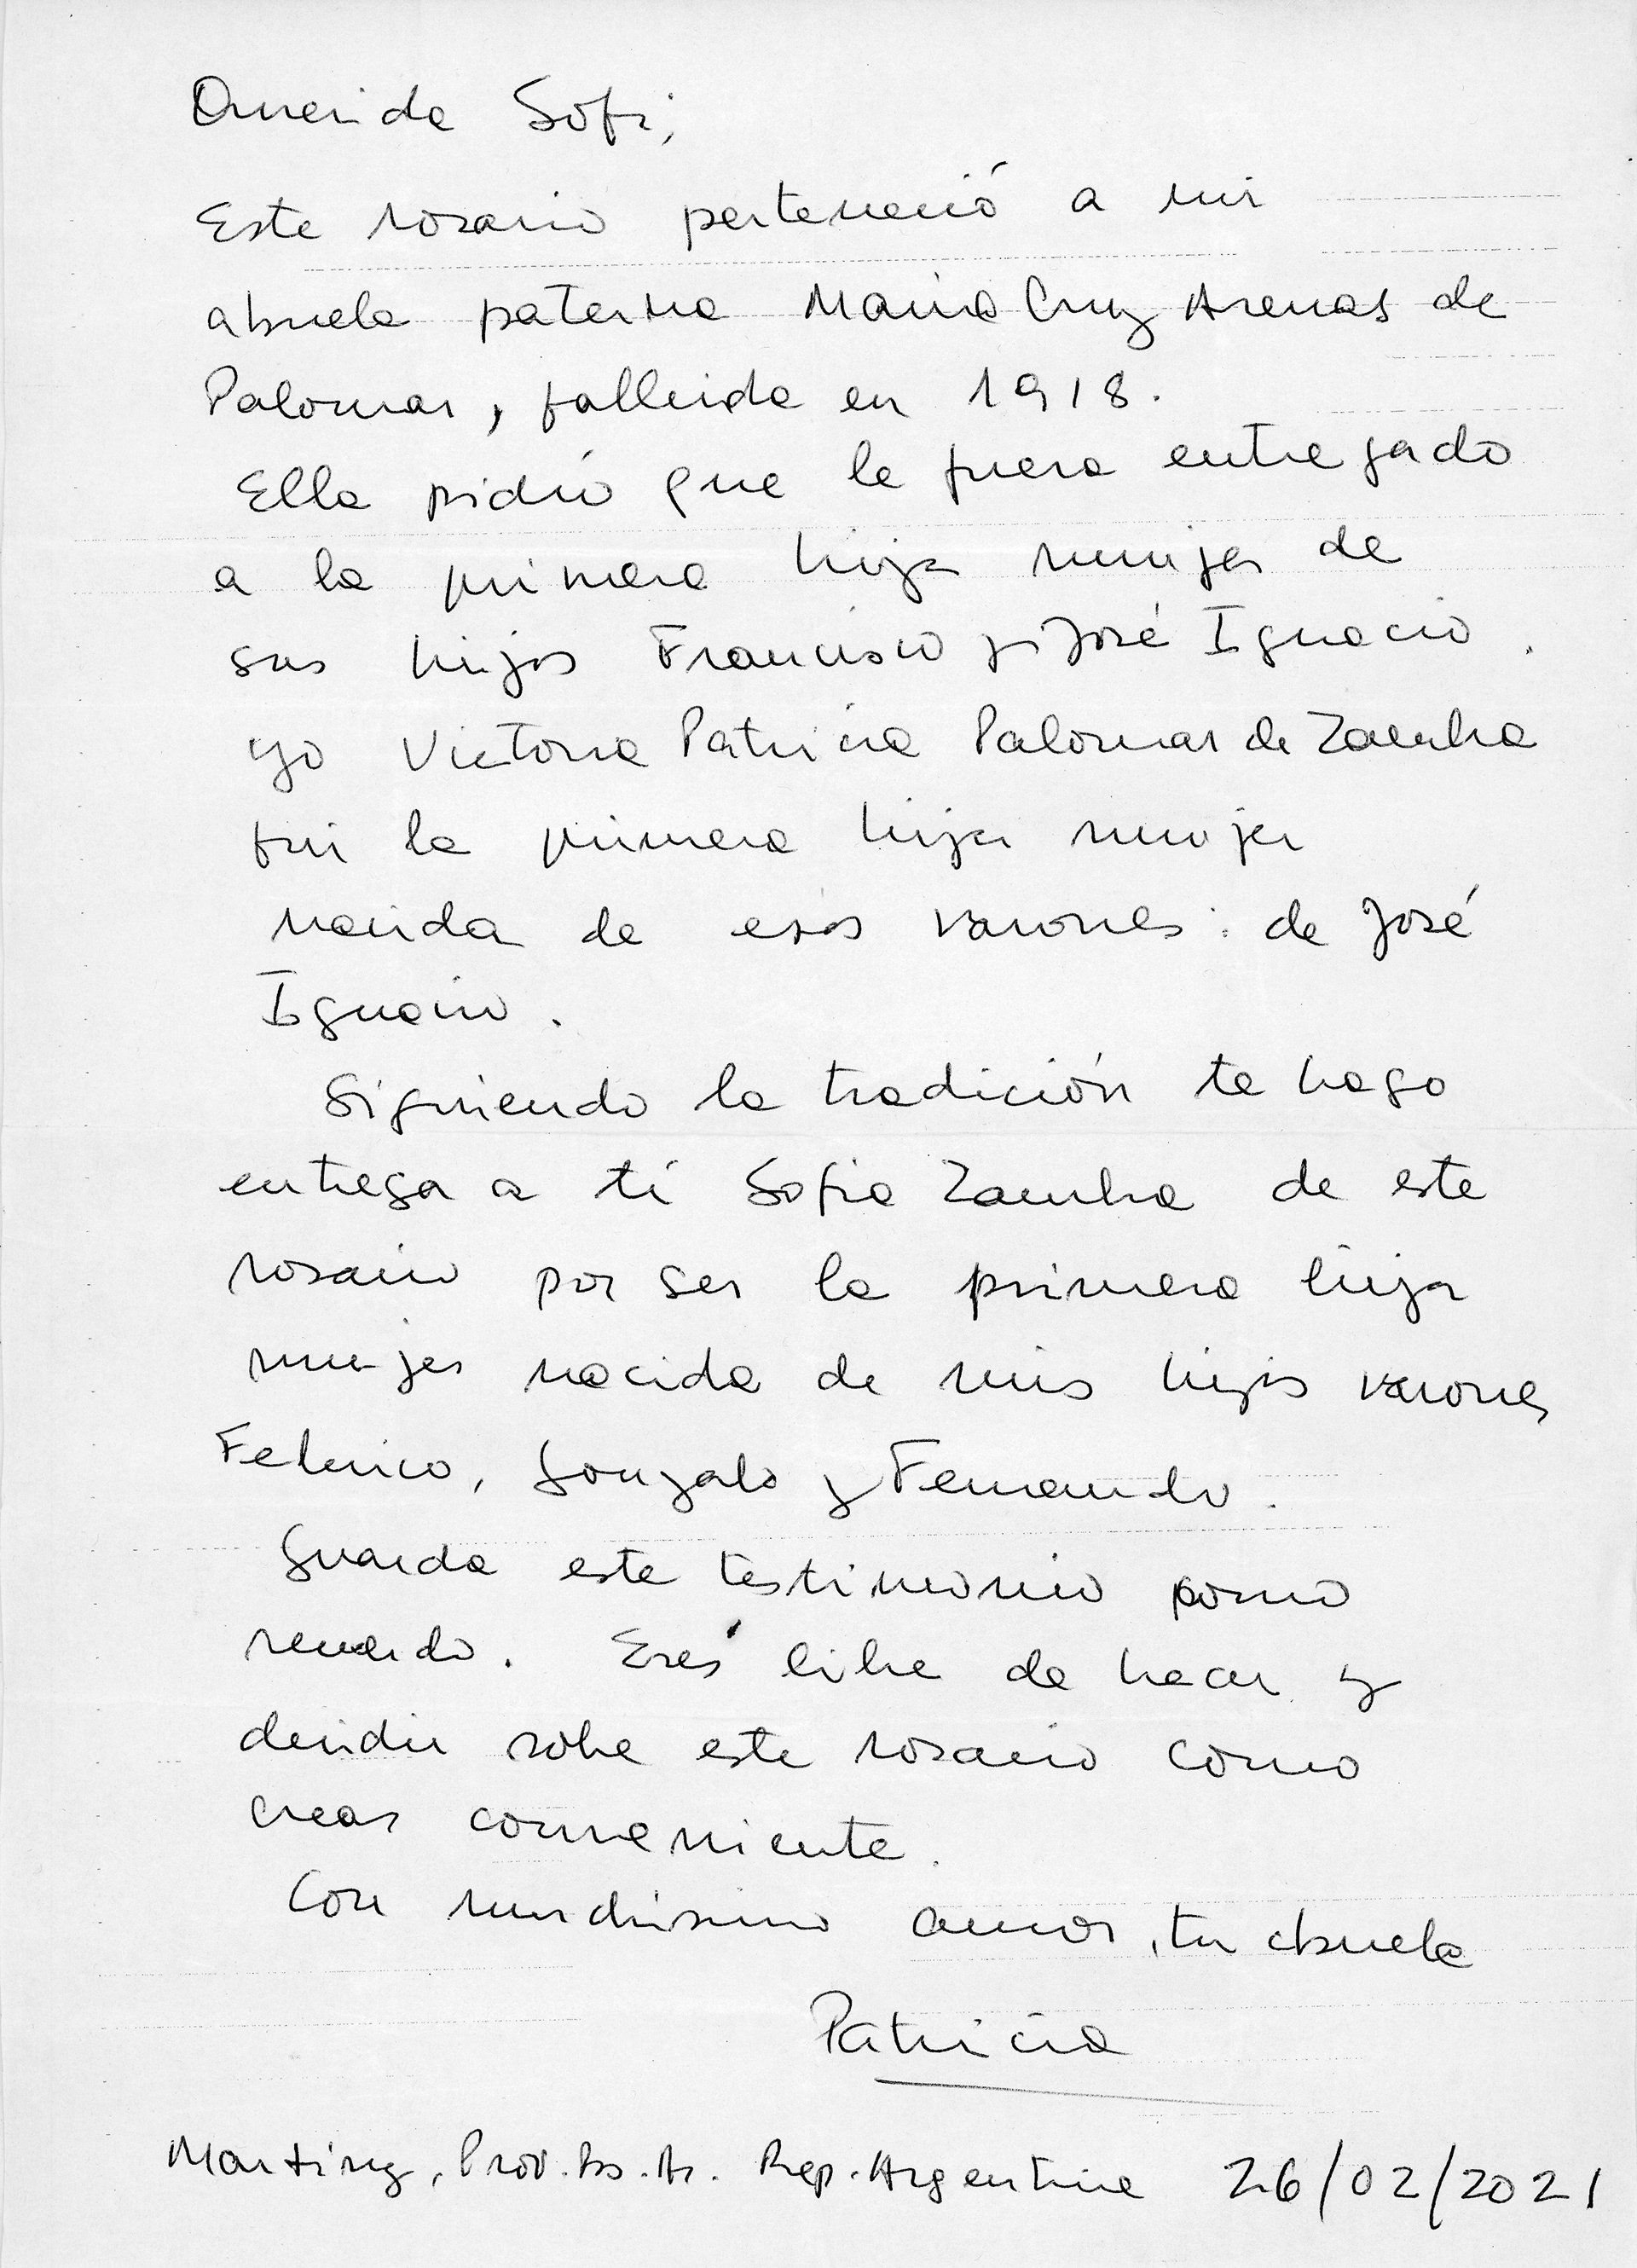 Querida Sofi,
Este rosario perteneció a mi
abuela paterna María Cruz Arenas de
Palomar, fallecida en 1918.
Ella pidió que le fuera entregado
a la primera hija mujer de
sus hijos Francisco y José Ignacio.
Yo Victoria Patricia Palomar de Zambra
fui la primera hija mujer
nacida de esos varones: de José
Ignacio.
Siguiendo la tradición te hago
entrega a ti Sofia Zambra de este
rosario por ser la primera hija
mujer nacida de mis hijos varones
Federico, Gonzalo y Fernando.
Guarda este testimonio como
recuerdo. Eres libre de hacer y
decidir sobre este rosario como
creas conveniente.
Con muchísimo amor, tu abuela
Patricia
Martínez, Prov. Bs. As. Rep. Argentina 26/02/2021